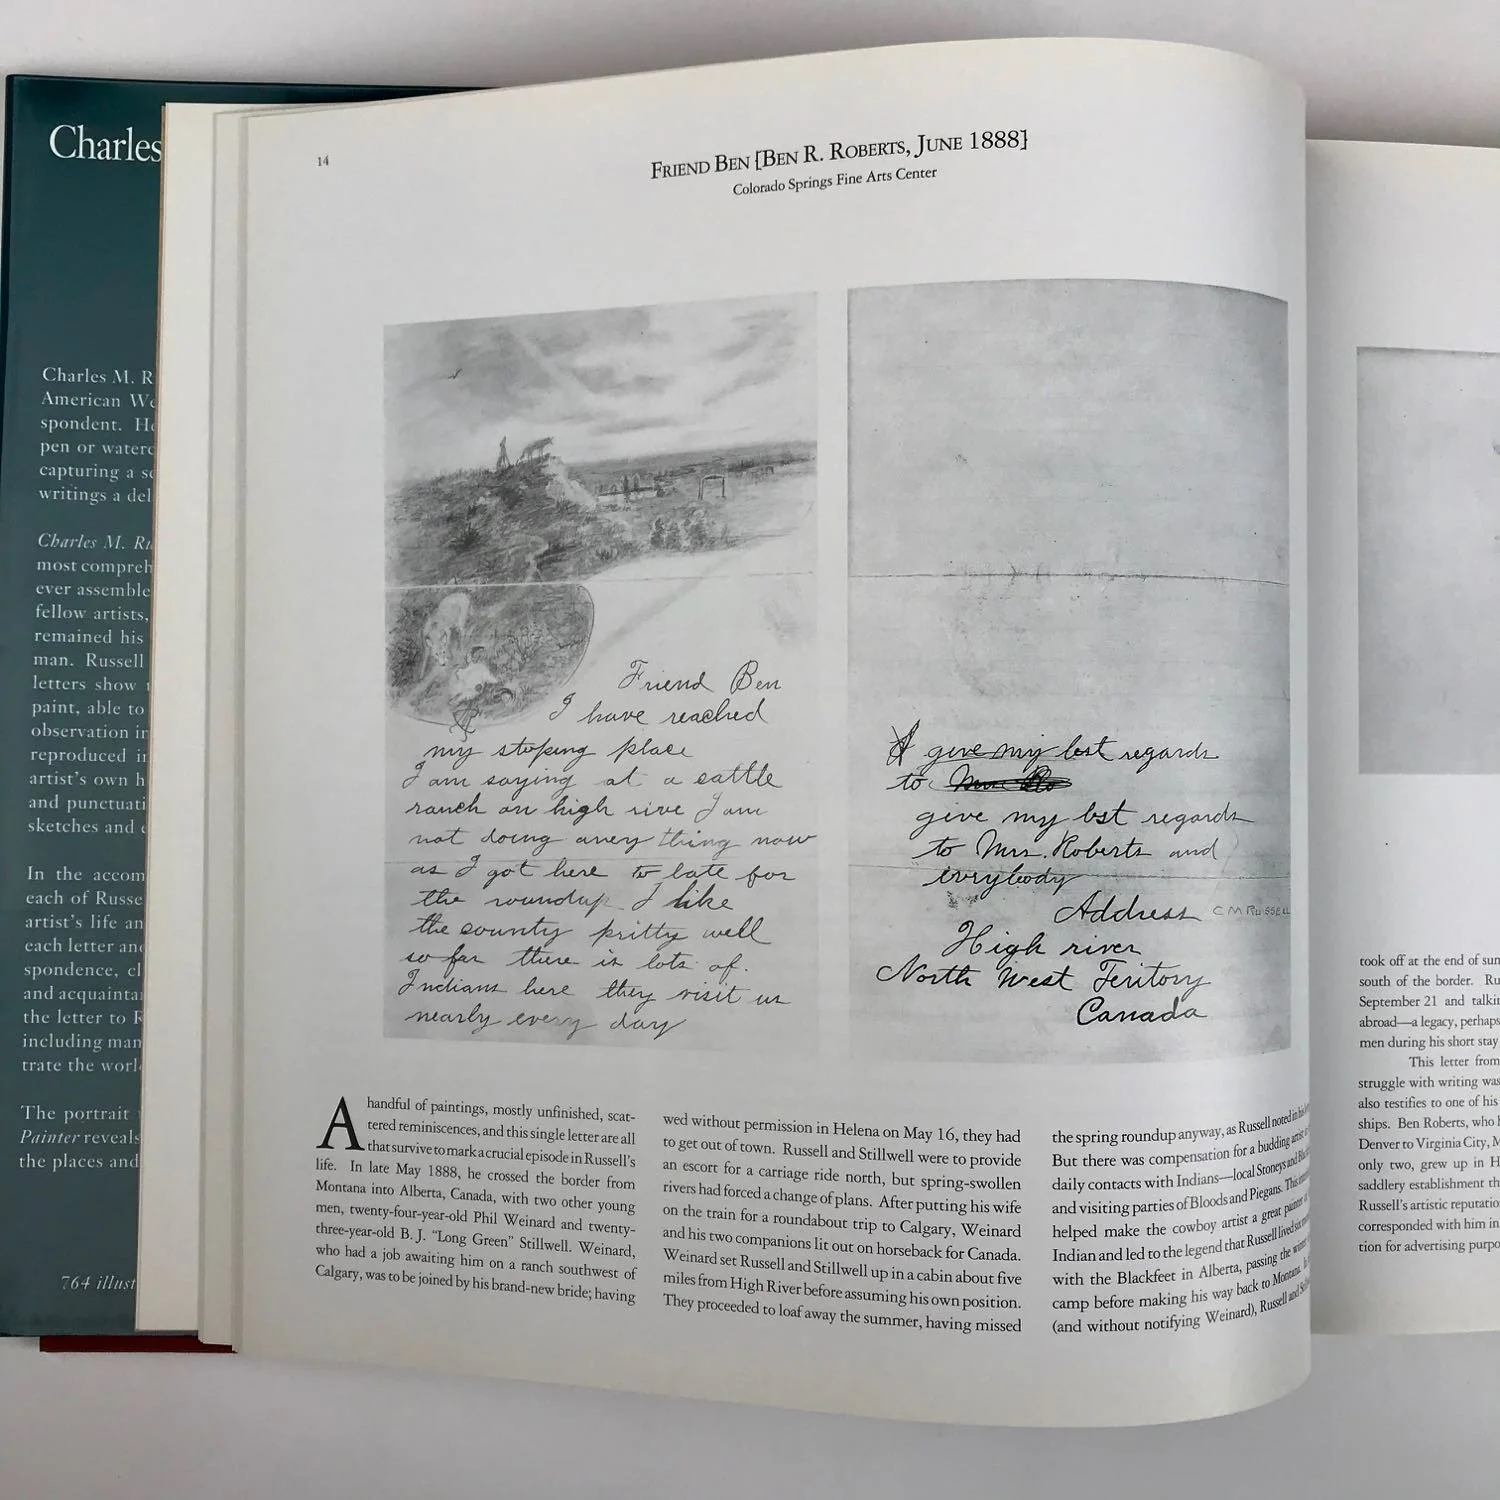 Charles
Charles M. R
American We
spondent. He
pen or waterc
capturing a s
writings a del
Charles M. Ru
most compreh
ever assemble
fellow artists,
remained his
man. Russell
letters show
paint, able to
observation in
reproduced i
artist's own h
and punctuati
sketches and
In the accom
each of Russe
artist's life an
each letter and
spondence, cl
and acquainta
the letter to R
including man
trate the worl
The portrait
Painter reveals
the places and
764 illust
14
FRIEND BEN [BEN R. ROBERTS, JUNE 1888]
Colorado Springs Fine Arts Center
Friend Ben
I have reached
my stoping place
I am saying at a cattle
ranch on high rive I am
not doing aney thing now
as I got here to late for
the roundup I like
the county pritty well
so far there is lots of.
Indians here they visit us
nearly every day
I give my best regards
to
give my bst regards
to Mrs. Roberts and
evrybody
Address C M RUSSELL
High river
North West Teritory
Canada
A handful of paintings, mostly unfinished, scat-
tered reminiscences, and this single letter are all
that survive to mark a crucial episode in Russell's
life. In late May 1888, he crossed the border from
Montana into Alberta, Canada, with two other young
men, twenty-four-year-old Phil Weinard and twenty-
three-year-old B. J. "Long Green" Stillwell. Weinard,
who had a job awaiting him on a ranch southwest of
Calgary, was to be joined by his brand-new bride; having
wed without permission in Helena on May 16, they had
to get out of town. Russell and Stillwell were to provide
an escort for a carriage ride north, but spring-swollen
rivers had forced a change of plans. After putting his wife
on the train for a roundabout trip to Calgary, Weinard
and his two companions lit out on horseback for Canada.
Weinard set Russell and Stillwell up in a cabin about five
miles from High River before assuming his own position.
They proceeded to loaf away the summer, having missed
the spring roundup anyway, as Russell noted in his
But there was compensation for a budding artist
daily contacts with Indians—local Stoneys and
and visiting parties of Bloods and Piegans. This
helped make the cowboy artist a great painter
Indian and led to the legend that Russell lived
with the Blackfeet in Alberta, passing the
camp before making his way back to Montana.
(and without notifying Weinard), Russell and
took off at the end of sum
south of the border. Ru
September 21 and talki
abroad—a legacy, perhaps
men during his short stay
This letter from
struggle with writing was
also testifies to one of his
ships. Ben Roberts, who
Denver to Virginia City, M
only two, grew up in H
saddlery establishment th
Russell's artistic reputatio
corresponded with him in
tion for advertising purpo